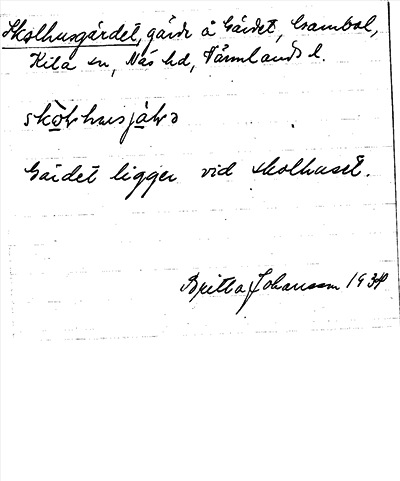 Skolhusgärdet, gärde å Gärdet, Grambol,
Kila sn, Näs hd, Värmlands l.
skòḷhusjæḷɜ
Gärdet ligger vid skolhuset.
Britta Johansson 1934